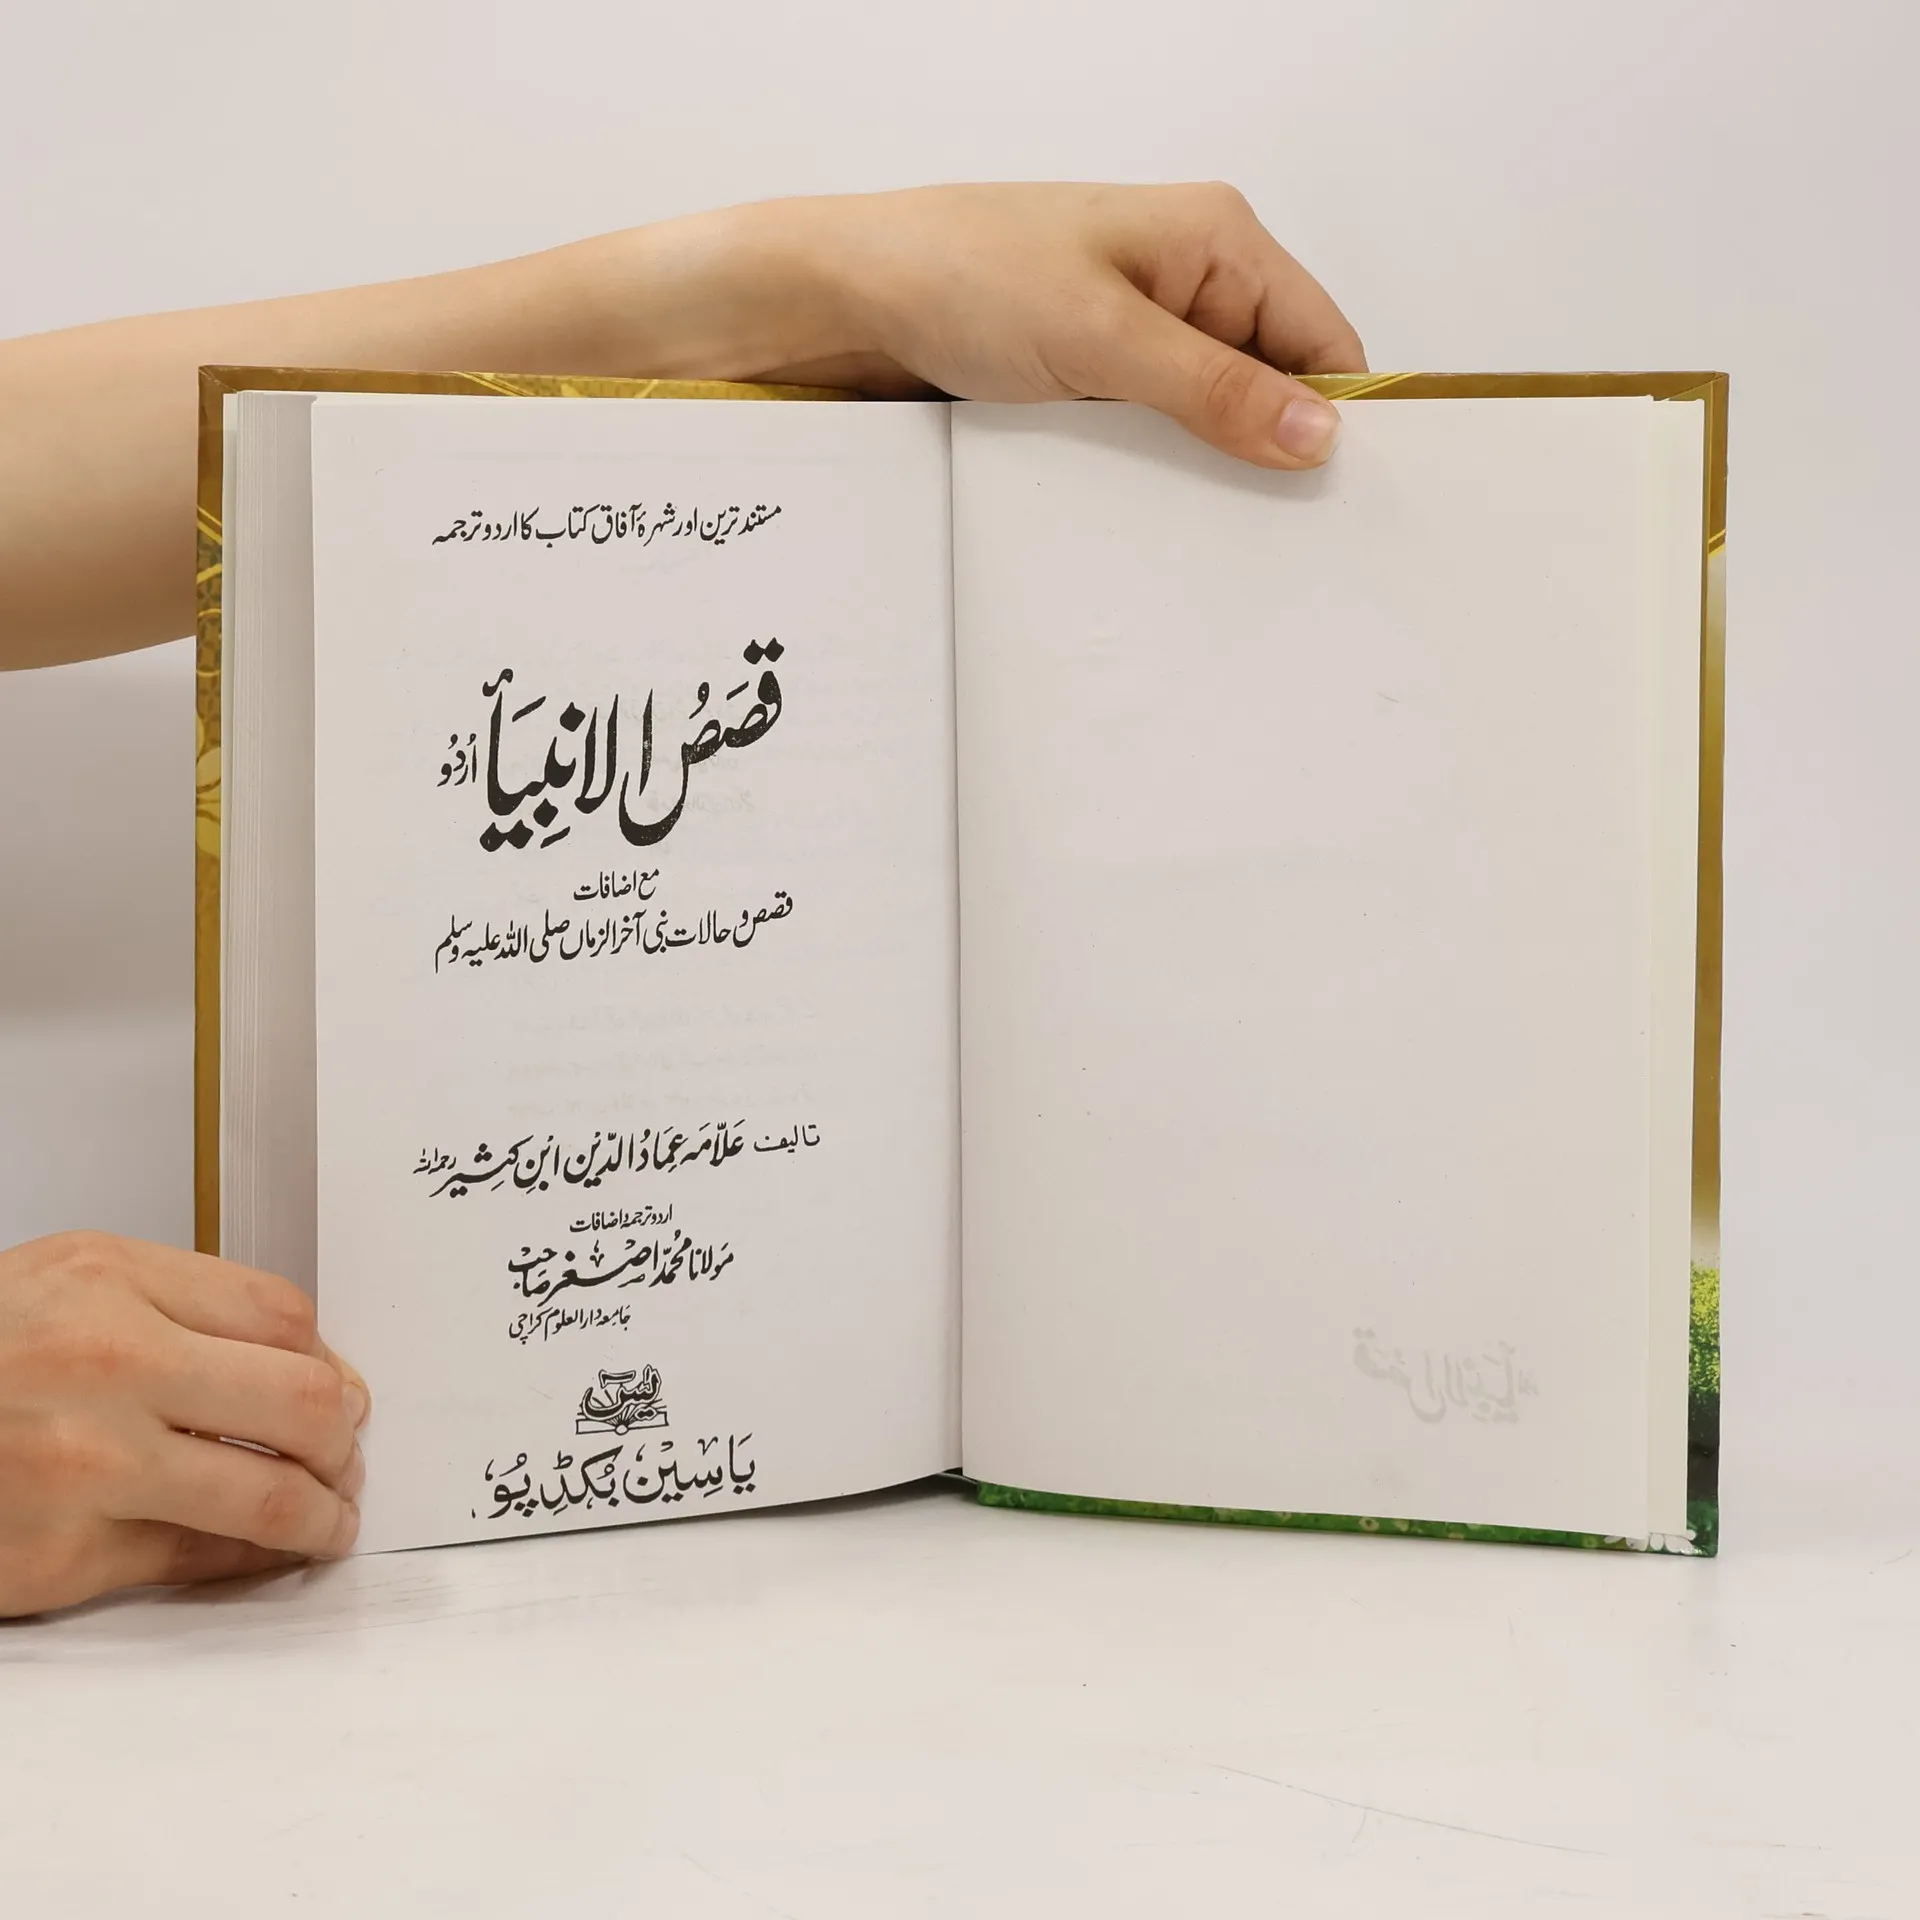 مستند ترین اور شہرۂ آفاق کتاب کا اردو ترجمہ
قصَصُ الانبِیَاؑ اُردُو
مع اضافات
قصص و حالات نبی آخر الزماں صلی اللہ علیہ وسلم
تالیف عَلّامَہ عِمَادُ الدِّیْن ابْنِ کَثِیر رحمہ اللہ
اردو ترجمہ و اضافات
مَولانا مُحمَّد اصغر صَاحب
جَامِعہ دار العلوم کراچی
یٰسٓ
یَاسِیْن بُکڈِپُو